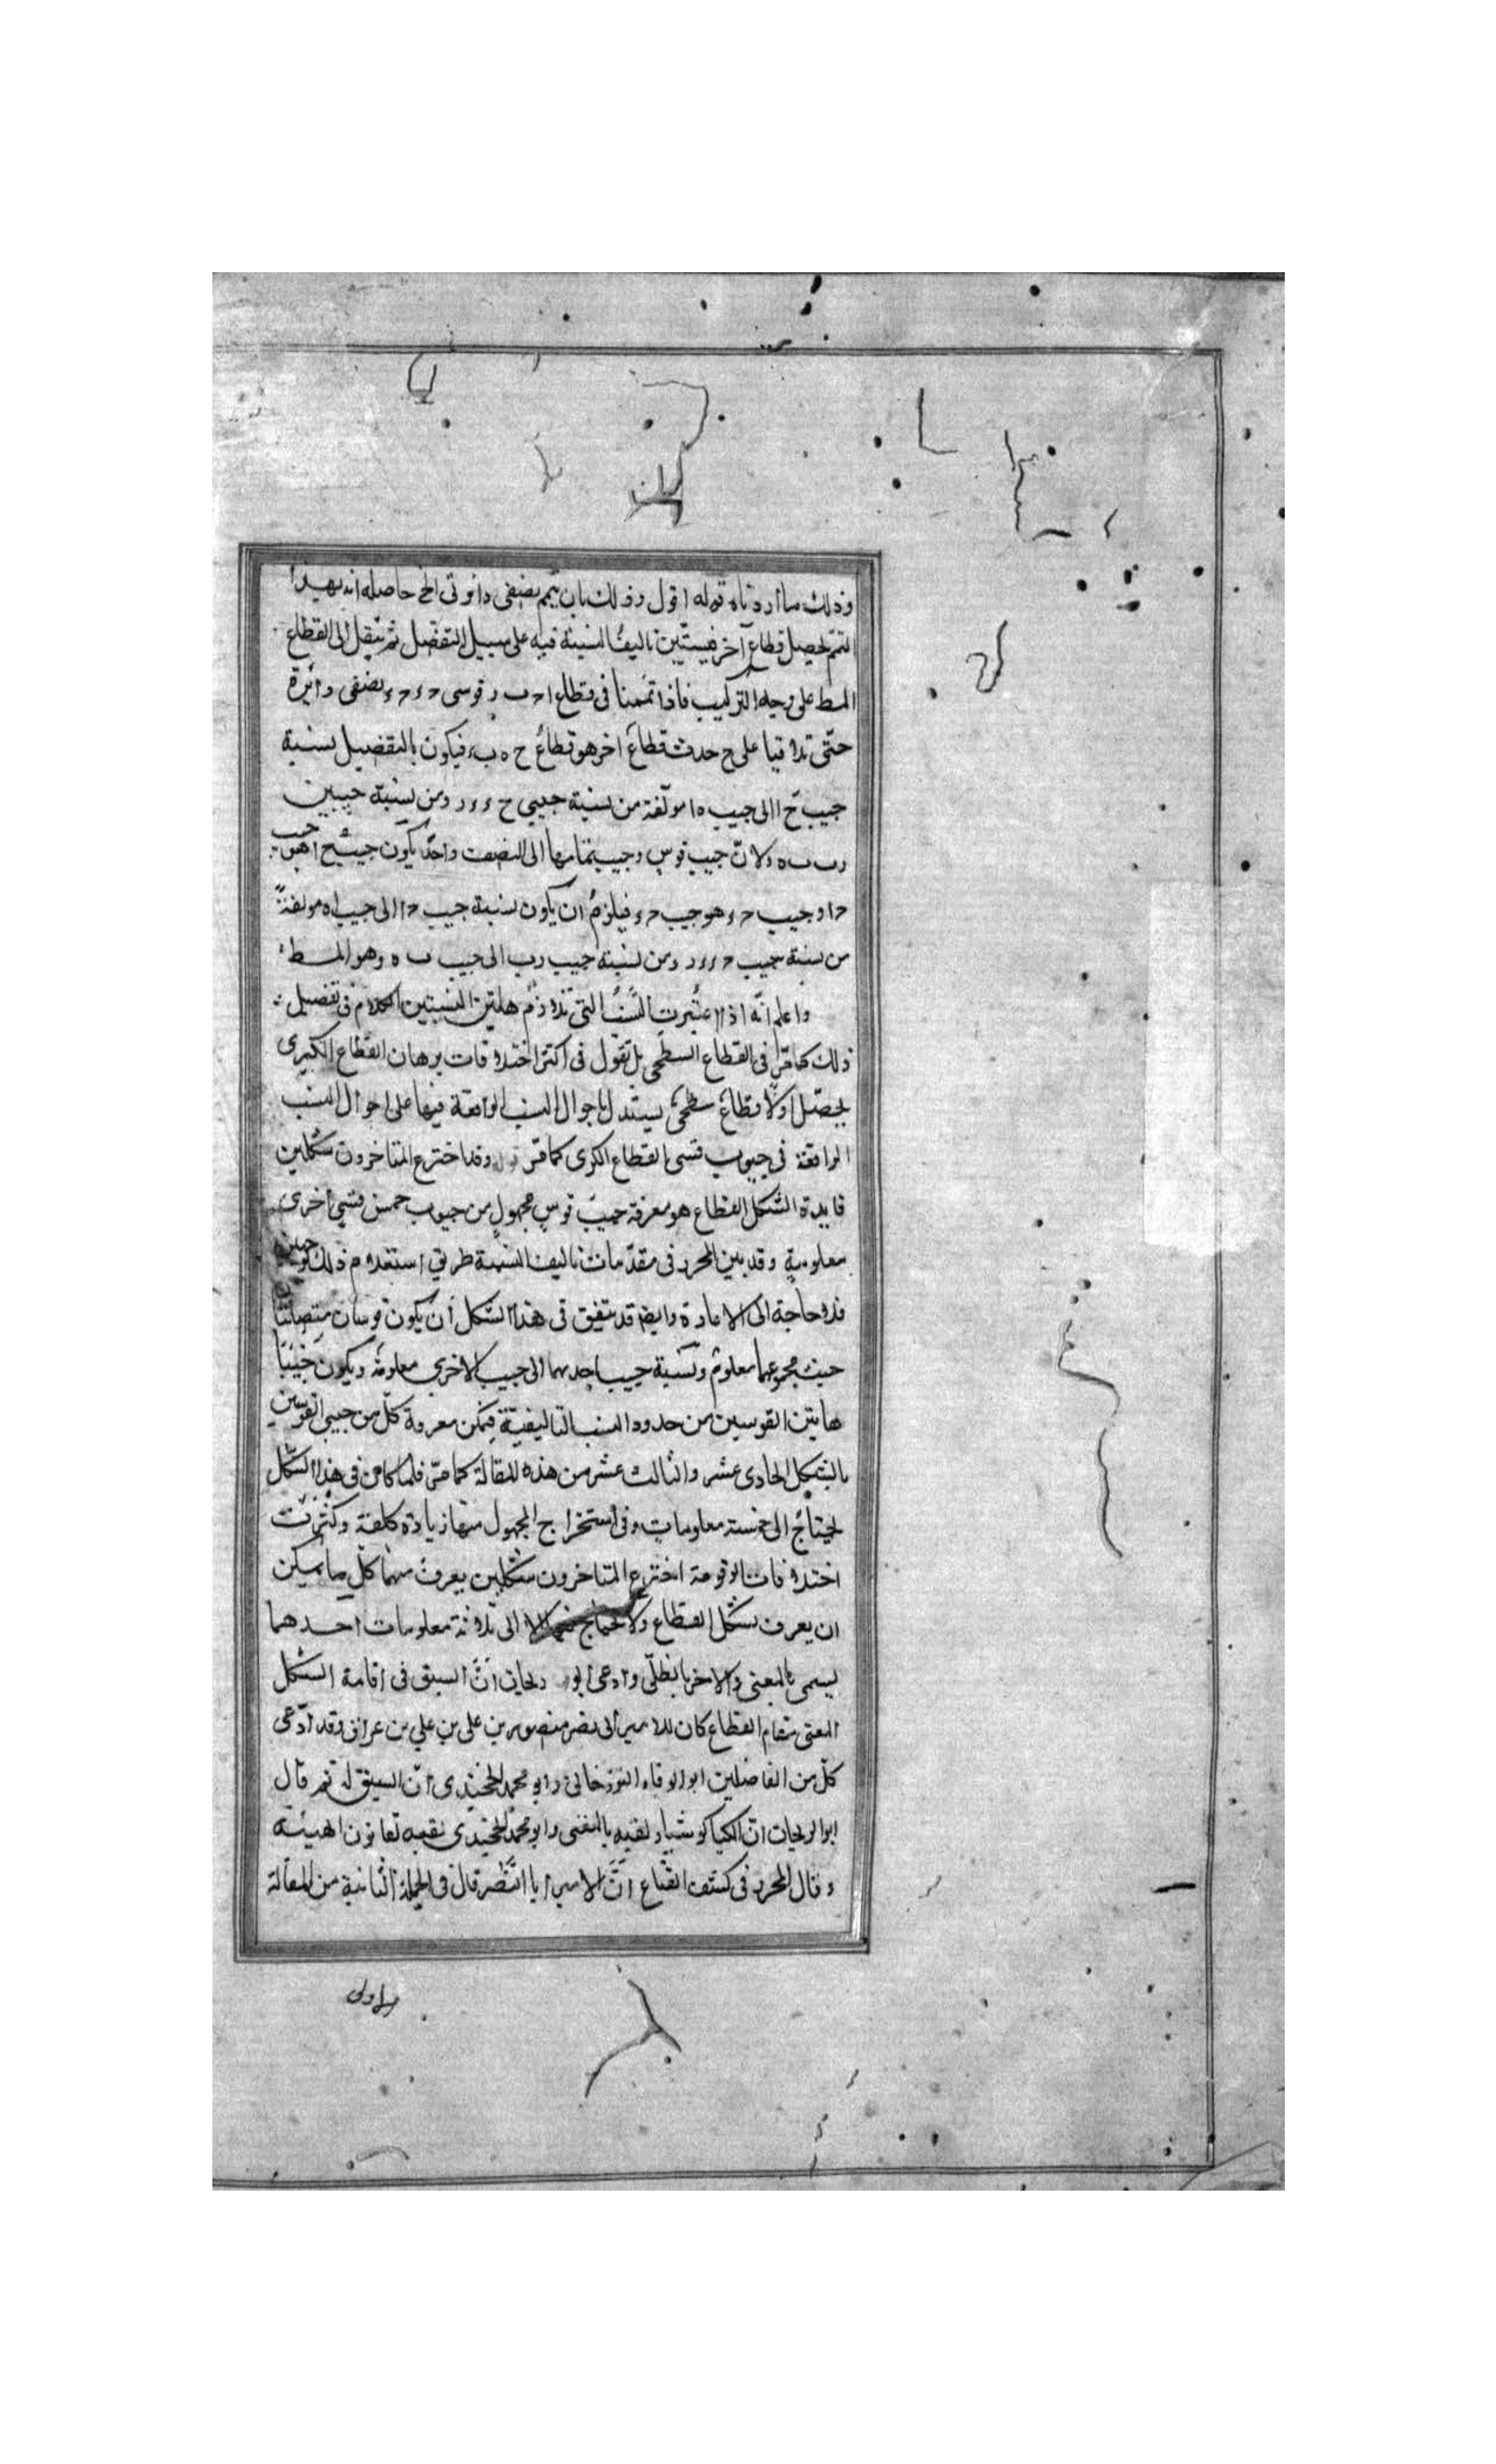 وذلك ما اردناه قوله اقول وذلك بان يتمم بنصفى دائرتى الخ حاصله انه بهيدا
التمم لحصيل قطاع آخر فيستبين تاليف النسبة فيه على سبيل التفصيل ثم ينقل الى القطاع
المط على وجه التركيب فاذا تممنا فى قطاع ا ح ب ر قوسى ح ء ح ء بنصفى دائرة
حتى تلاقيا على ح حدث قطاع اخر هو قطاع ح ه ب ء فيكون بالتفصيل نسبة
جيب ح ا الى جيب ه ا مولفة من نسبة جيبى ح ء ء ر ومن نسبة جيبين
ر ب ب ه ولان جيب قوس وجيب تمامها الى النصف واحد يكون جيب ح ا هو جيب
ح ا وجيب ح ء هو جيب ح ء فيلزم ان يكون نسبة جيب ح ا الى جيب ا ه مولفة
من نسبة جيب ح ء ء ر ومن نسبة جيب ر ب الى جيب ب ه وهو المط
واعلم انه اذا اعتبرت النسب التى تلازم هاتين النسبتين الكلام فى تفصيل
ذلك كما مر فى القطاع السطحى بل تقول فى اكثر اختلافات برهان القطاع الكبرى
يحصل اولا قطاع سطحى يستدل باحوال النسب الواقعة فيها على احوال النسب
الواقعة فى جيوب قسى القطاع الكرى كما مر وقد اخترع المتاخرون شكلين
فايدة الشكل القطاع هو معرفة جيب قوس مجهول من جيوب خمس قسى اخرى
معلومة وقد بين المحرر فى مقدمات تاليف النسبة طريق استعلام ذلك
فلا حاجة الى الاعادة وايضا قد يتفق فى هذا الشكل ان يكون قوسان متصلتان
حيث مجموعهما معلوم ونسبة جيب احدهما الى جيب الاخرى معلومة ويكون جيبا
هاتين القوسين من حدود النسب التاليفية فيمكن معروفة كل من جيبى القوسين
بالشكل الحادى عشر والثالث عشر من هذه المقالة كما مر فلما كان فى هذا الشكل
يحتاج الى خمسة معلومات وفى استخراج المجهول منها زيادة كلفة وكثرت
اختلافات الوقوعة اخترع المتاخرون شكلين يعرف منهما كل ما يمكن
ان يعرف بشكل القطاع ولا يحتاج الا الى ثلاثة معلومات احدهما
يسمى بالمعنى والاخر بالظلى وادعى ابو ريحان ان السبق فى اقامة الشكل
المعنى مقام القطاع كان للامير ابى نصر منصور بن على بن على بن عراق وقد ادعى
كل من الفاضلين ابو الوفاء البوزجانى وابو محمد الخجندى ان السبق له ثم قال
ابو الريحان ان الكيا كوشيار لقبه بالمغنى وابو محمد الخجندى لقبه بقانون الهيئة
وقال المحرر فى كشف القناع ان الامير ابا النصر قال فى الجملة الثانية من المقالة